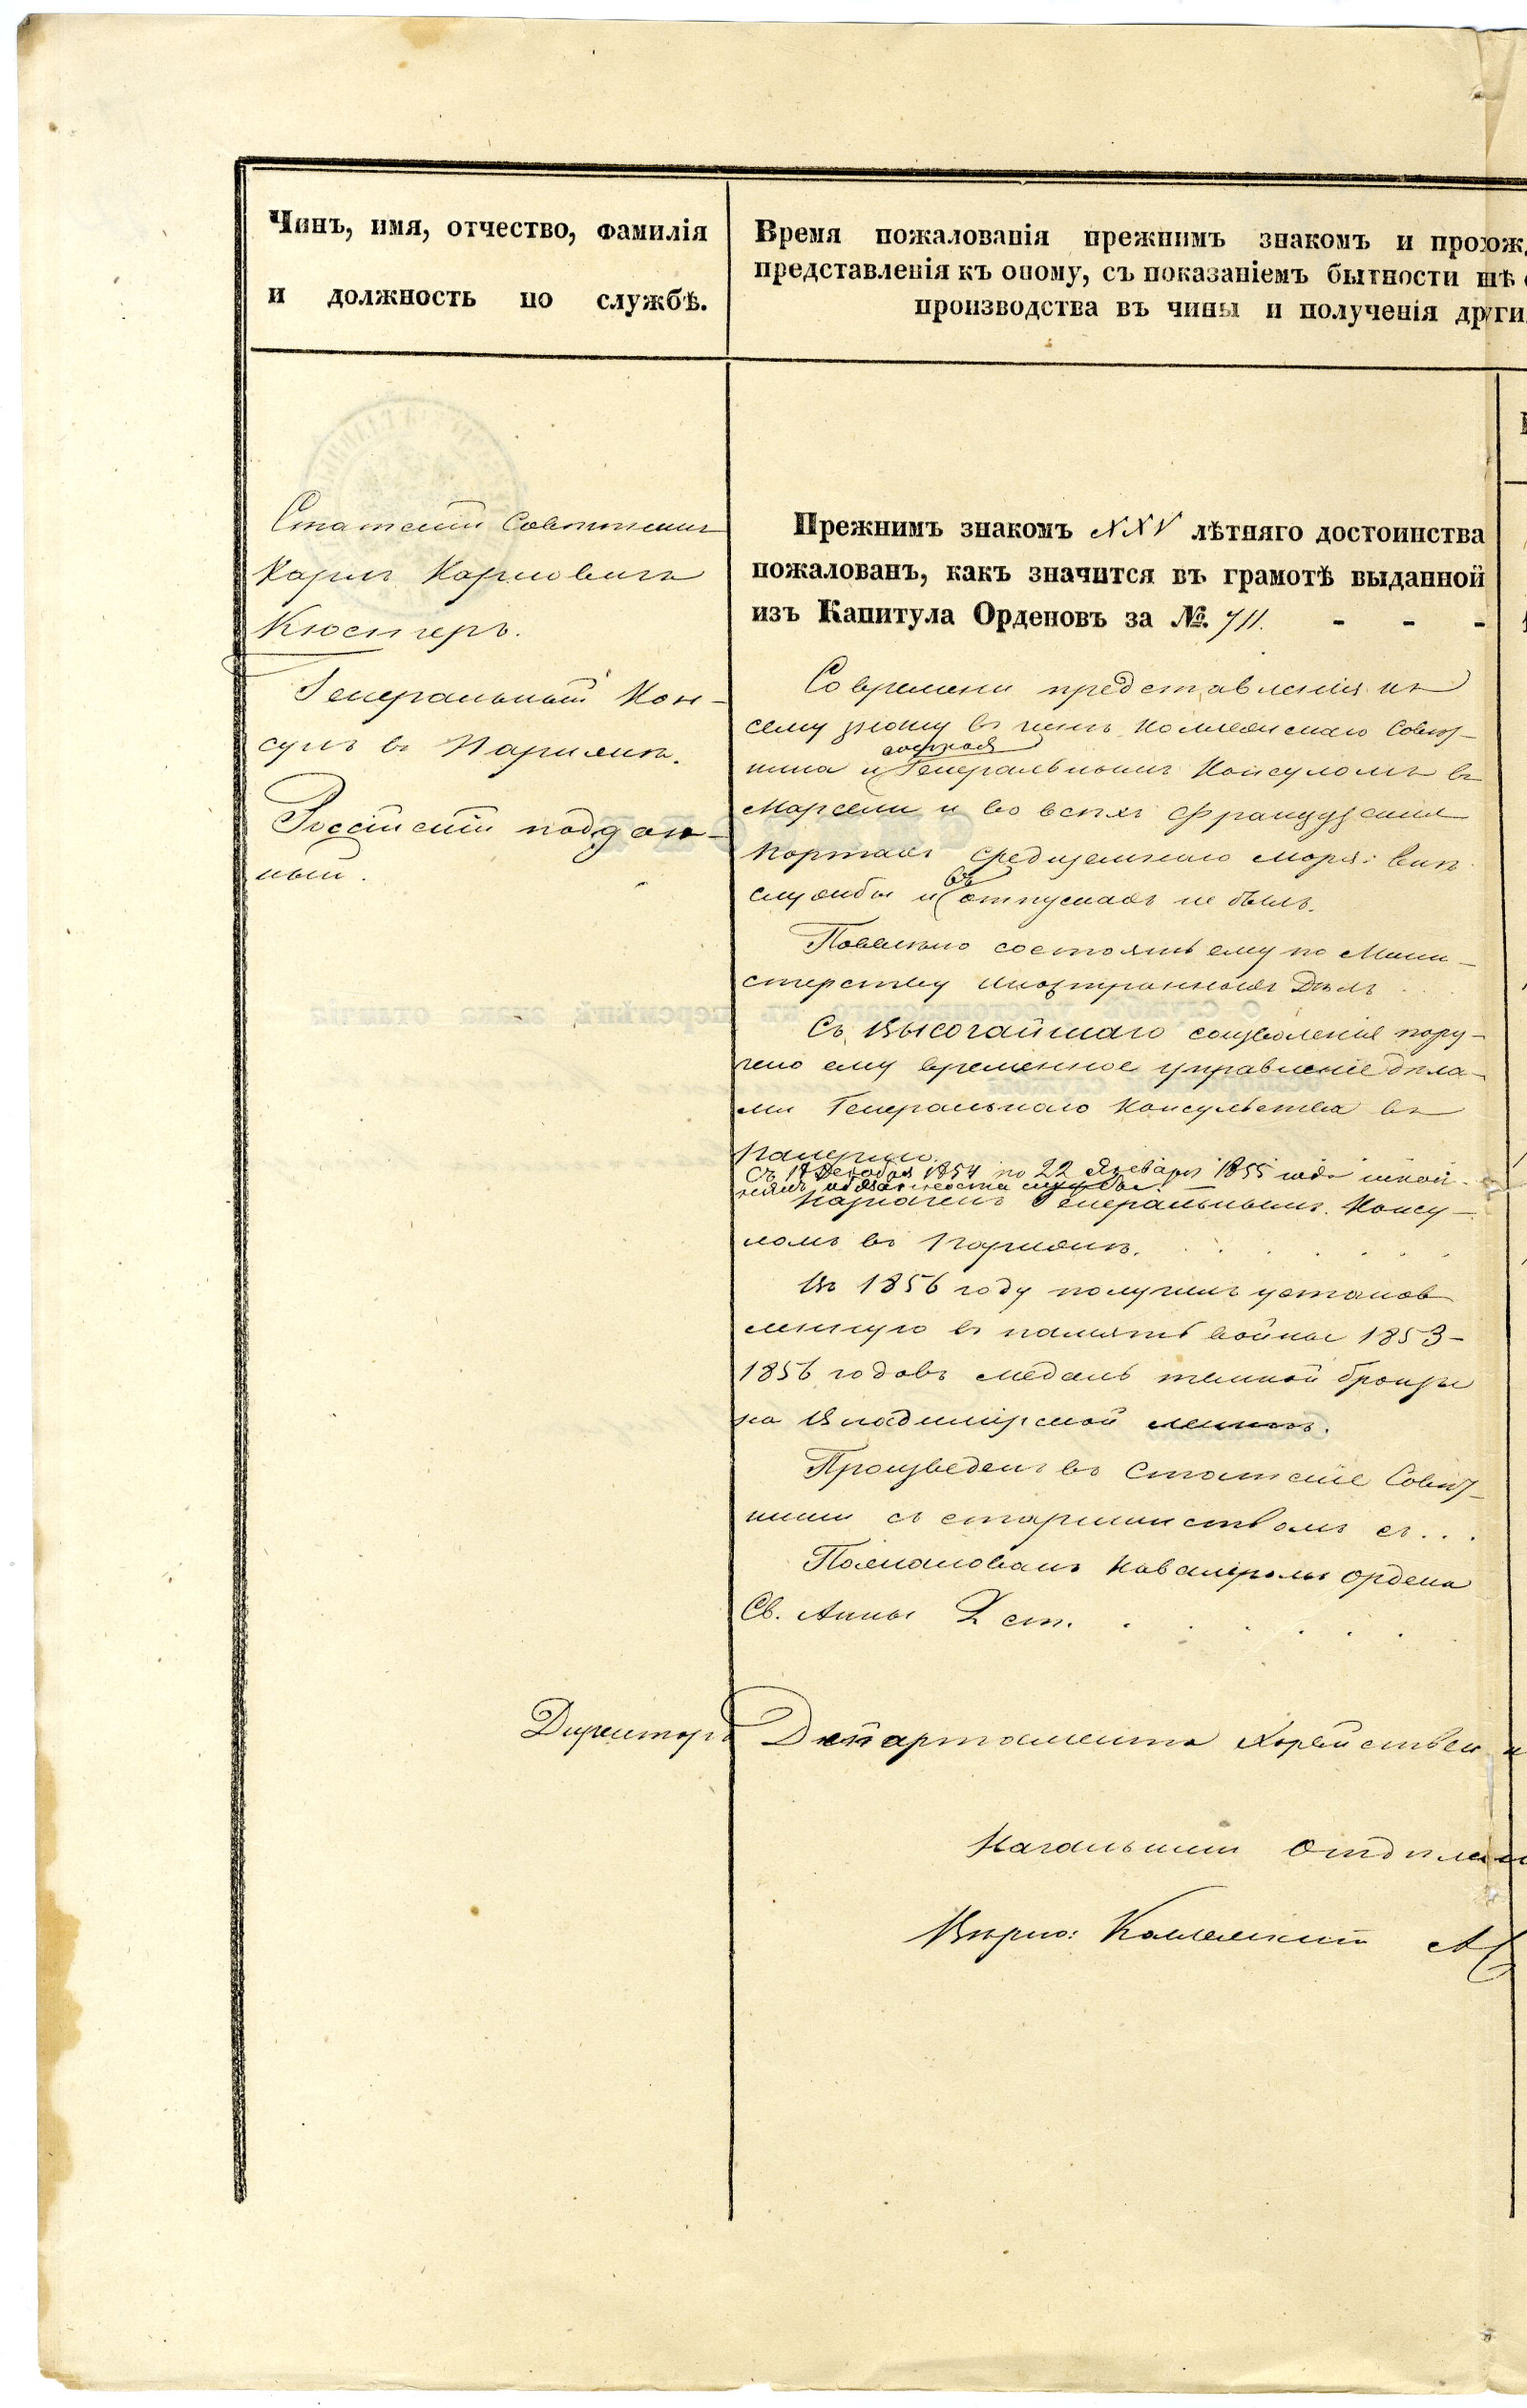 Чинъ, имя, отчество, фамилія
и должность по службѣ.
Время пожалованія прежнимъ знакомъ и прохож
представленія къ оному, съ показаніемъ бытности
производства въ чины и полученія други
Статскій Совѣтникъ
Карлъ Карловичъ
Кюстеръ.
Генеральный Кон-
сулъ въ Парижѣ.
Россійскій поддан-
ный.
Прежнимъ знакомъ XXV лѣтняго достоинства
пожалованъ, какъ значится въ грамотѣ выданной
изъ Капитула Орденовъ за №. 711. - - -
Со времени представленія къ
сему знаку въ чинѣ Коллежскаго Совѣт-
ника и состоя Генеральнымъ Консуломъ въ
Марсели и во всѣхъ Французскихъ
портахъ Средиземнаго моря: внѣ
службы и въ отпускахъ не былъ.
Повелѣно состоять ему по Мини-
стерству Иностранныхъ Дѣлъ . . .
Съ Высочайшаго соизволенія пору-
чено ему временное управленіе дѣла-
ми Генеральнаго Консульства въ
Палермо.
Съ 18 Декабря 1854 по 22 Января 1855 года
Назначенъ Генеральнымъ Консу-
ломъ въ Парижѣ. . . . . . .
Въ 1856 году получилъ установ
ленную въ память войны 1853-
1856 годовъ медаль темной бронзы
на Владимірской лентѣ.
Произведенъ въ Статскіе Совѣт-
ники съ старшинствомъ съ . . .
Пожалованъ Кавалеромъ ордена
Св. Анны 2 ст. . . . . . .
Директоръ Департамента Хозяйствен
Начальникъ Отдѣлен
Вѣрно: